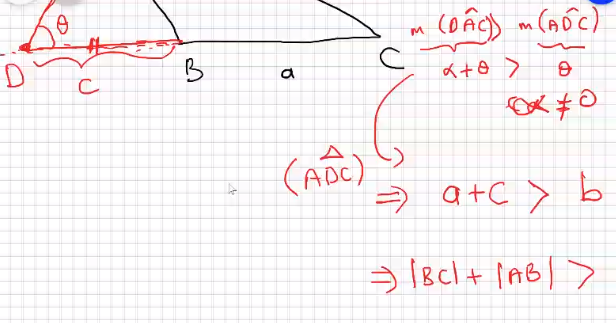 θ
D
C
B
a
C
m (DÂC) > m (AD̂C)
α + θ > θ
α ≠ 0
(AD̂C)
⇒ a + C > b
⇒ |BC| + |AB| >